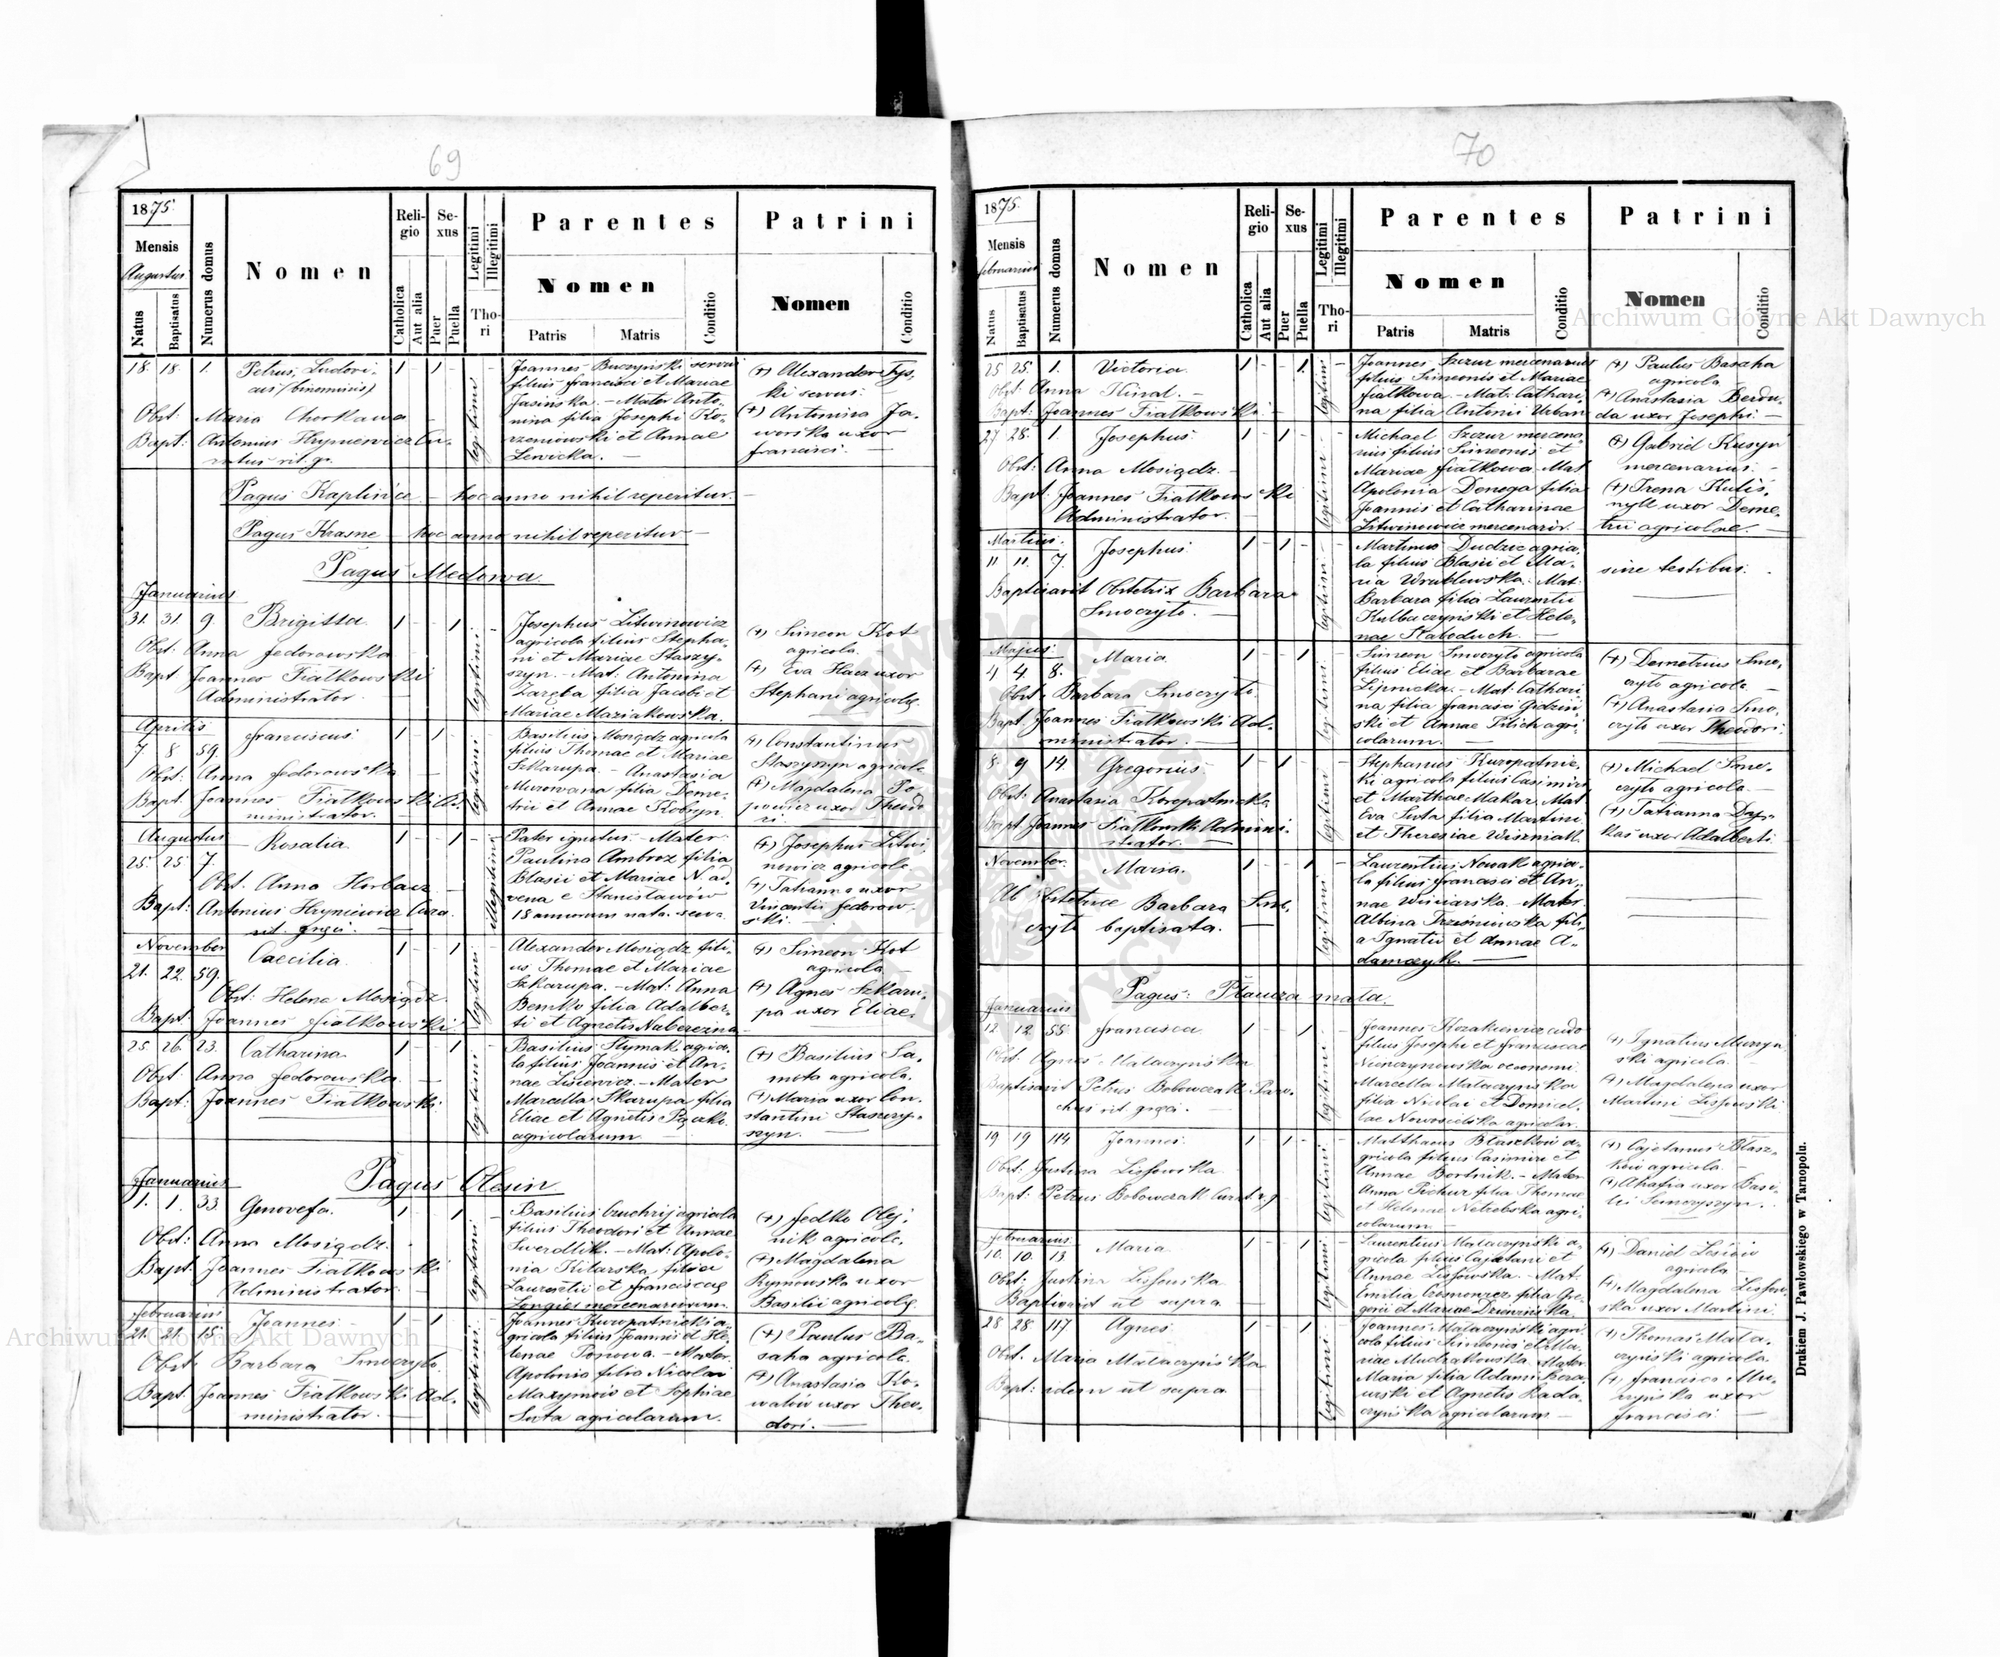 69
1875.
Mensis
Augustus
Natus
Baptisatus
Numerus domus
Nomen
Religio
Catholica
Aut alia
Sexus
Puer
Puella
Legitimi
Illegitimi
Thori
Parentes
Nomen
Patris
Matris
Conditio
Patrini
Nomen
Conditio
18. 18. 1. Petrus, Ludovi-
cus (binominis)
Obst: Maria
Bapt: Antonius Hryniewicz Cu-
ratus rit. gr.
legitimi
Joannes Buczyński servus
filius Francisci et Mariae
Jasińska. - Mater Anto-
nina filia Josephi Ko-
rzeniowski et Annae
Lewicka. -
(+) Alexander Tys,
ki servus. -
(+) Antonina Ja-
worska uxor
Francisci. -
Pagus Kaplińce - hoc anno nihil reperitur. -
Pagus Krasne - hoc anno nihil reperitur -
Pagus Medowa.
Januarius
31. 31. 9. Brigitta.
Obst: Anna Fedorowska
Bapt Joannes Fiałkowski
Administrator. -
legitimi
Josephus Litwinowicz
agricola filius Stepha-
ni et Mariae Staszy-
szyn. - Mat: Antonina
Zaręba filia Jacobi et
Mariae Maziakowska.
(+) Simeon Kot
agricola.
(+) Eva uxor
Stephani agricolae.
Aprilis
7. 8. 59. Franciscus
Obst: Anna Fedorowska
Bapt. Joannes Fiałkowski Ad-
ministrator. -
legitimi
Basilius Mosiądz agricola
filius Thomae et Mariae
Szkarupa. - Anastasia
Murowana filia Deme-
trii et Annae Kobryn.
(+) Constantinus
Staszyszyn agricola
(+) Magdalena Po-
powicz uxor Theodo
ri. -
Augustus
25. 25. 7. Rosalia.
Obst. Anna Horbacz. -
Bapt: Antonius Hryniewicz Cura.
rit. graeci. -
illegitimi
Pater ignotus. - Mater
Paulina Ambroz filia
Blasii et Mariae N. ad,
vena e Stanisławów
18 annorum nata. serva.
(+) Josephus Litwi,
nowicz agricola.
(+) Tatianna uxor
Vincentii Fedorow-
ski. -
November
21. 22. 59. Caecilia.
Obst: Helena Mosiądz.
Bapt. Joannes Fiałkowski.
legitimi
Alexander Mosiądz fili-
us Thomae et Mariae
Szkarupa. - Mat: Anna
Bemko filia Adalber-
ti et Agnetis Naberezna
(+) Simeon Kot
agricola -
(+) Agnes Szkaru-
pa uxor Eliae.
25. 26. 23. Catharina.
Obst: Anna Fedorowska. -
Bapt: Joannes Fiałkowski.
legitimi
Basilius Stymak agrico-
la filius Joannis et An-
nae Lisiewicz. - Mater
Marcella Skarupa filia
Eliae et Agnetis Pączko.
agricolarum. -
(+) Basilius Sa-
mota agricola.
(+) Maria uxor Con-
stantini Staszy-
szyn. -
Pagus Olesin
Januarius
1. 1. 33. Genovefa.
Obst: Anna Mosiądz.
Bapt. Joannes Fiałkowski
Administrator. -
legitimi
Basilius agricola
filius Theodori et Annae
Swerdlik. - Mat: Apolo-
nia Kitarska, filia
Laurentii et Franciscae
mercenariorum.
(+) Fedko Olej-
nik agricola.
(+) Magdalena
Rymowska uxor
Basilii agricolae.
Februarius
21. 21. 15. Joannes. -
Obst. Barbara Smoczyło.
Bapt. Joannes Fiałkowski Ad-
ministrator. -
legitimi
Joannes Kuropatnicki a-
gricola filius Joannis et He-
lenae Popowa. - Mater
Apolonia filia Nicolai
Maxymów et Sophiae
Suta agricolarum.
(+) Paulus Ba-
saha agricola.
(+) Anastasia Ko-
walów uxor Theo-
dori. -
70
1875.
Mensis
Februarius
Natus
Baptisatus
Numerus domus
Nomen
Religio
Catholica
Aut alia
Sexus
Puer
Puella
Legitimi
Illegitimi
Thori
Parentes
Nomen
Patris
Matris
Conditio
Patrini
Nomen
Conditio
25 25. 1. Victoria.
Obst: Anna -
Bapt: Joannes Fiałkowski. -
legitimi
Joannes Szczur mercenarius
filius Simeonis et Mariae
Fiałkowa. - Mat. Cathari,
na filia Antonii Urban
(+) Paulus Basaha
agricola
(+) Anastasia Berdu-
da uxor Josephi. -
27 28. 1. Josephus.
Obst: Anna Mosiądz. -
Bapt: Joannes Fiałkowski
Administrator. -
legitimi
Michael Szczur mercena-
rius filius Simeonis et
Mariae Fiałkowa. Mat
Apolonia Denega filia
Joannis et Catharinae
Litwinowicz mercenarior.
(+) Gabriel Kusyn
mercenarius. -
(+) Irena Kuliś,
nyk uxor Deme-
trii agricolae. -
Martius.
11 11. 7. Josephus.
Baptisavit Obstetrix Barbara
Smoczyło. -
legitimi
Martinus Dudzic agrico,
la filius Blasii et Ma-
ria Wrublewska. Mat:
Barbara filia Laurentii
Kulbaczyński et Hele-
nae Słaboduch. -
sine testibus.
Majus.
4 4. 8. Maria
Obst: Barbara Smoczyło
Bapt. Joannes Fiałkowski Ad-
ministrator. -
legitimi
Simeon Smoczyło agricola
filius Eliae et Barbarae
Lipnicka. - Mat: Cathari-
na filia Francisci Gidziń
ski et Annae Pilich agri-
colarum. -
(+) Demetrius Smo,
czyło agricola. -
(+) Anastasia Smo,
czyło uxor Theodori.
8. 9 14. Gregorius.
Obst: Anastasia Kuropatnicka
Bapt Joannes Fiałkowski Admini-
strator. -
legitimi
Stephanus Kuropatnic-
ki agricola filius Casimiri
et Marthae Makar. Mat.
Eva Suta filia Martini
et Theresiae Wiszniak.
(+) Michael Smo-
czyło agricola. -
(+) Tatianna Day-
kas uxor Adalberti.
November. Maria.
Ab obstetrice Barbara Smo,
czyło baptisata.
legitimi
Laurentius Nowak agrico-
la filius Francisci et An-
nae Winiarska. - Mater
Albina Trześniowska fili-
a Ignatii et Annae A-
damczyk. -
Pagus: Płaucza mała.
Januarius
12. 12 58. Francisca
Obst: Agnes Małaczyńska
Baptisavit Petrus Bobowczak Paro-
chus rit. graeci. -
legitimi
Joannes Kozakiewicz
filius Josephi et Franciscae
oeconomi.
Marcella Małaczyńska
filia Nicolai et Domicel-
lae Nowosielska agricolar.
(+) Ignatius
ski agricola.
(+) Magdalena uxor
Martini Lissowski.
19 19 114 Joannes.
Obst: Justina Lissowska.
Bapt: Petrus Bobowczak Curat. r. g.
legitimi
Matthaeus Błaszków a-
gricola filius Casimiri et
Annae Bortnik. - Mater
Anna Pichur filia Thomae
et Helenae Netrebska agri-
colarum. -
(+) Cajetanus Błasz-
ków agricola. -
(+) Ahafia uxor Basi-
lii
Februarius.
10. 10. 13. Maria
Obst: Justina Lissowska
Baptisavit ut supra
legitimi
Laurentius Małaczyński a-
gricola filius Cajetani et
Annae Lissowska. - Mat.
Emilia filia Gre-
gorii et Mariae
(+) Daniel
agricola -
(+) Magdalena Lissow-
ska uxor Martini.
28 28. 117 Agnes.
Obst. Maria Małaczyńska
Bapt: idem ut supra
legitimi
Joannes Małaczyński agri-
cola filius Simeonis et Ma-
riae Mudrakowska. Mater
Maria filia Adami
et Agnetis
agricolarum -
(+) Thomas Mała-
czyński agricola.
(+) Francisca
uxor
Francisci -
Drukiem J. Pawłowskiego w Tarnopolu.
Archiwum Główne Akt Dawnych
Archiwum Główne Akt Dawnych